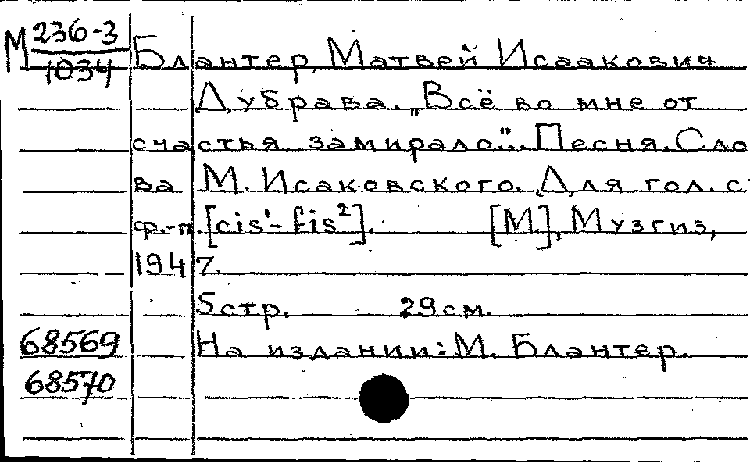 М 236-3
1034
Блантер, Матвей Исаакович
Дубрава. „Всё во мне от
счастья замирало". Песня. Сло
ва М. Исаковского. Для гол. с
ф.-п. [cis¹- fis²]. [М.], Музгиз,
1947.
5 стр. 29 см.
68569 На издании: М. Блантер.
68570